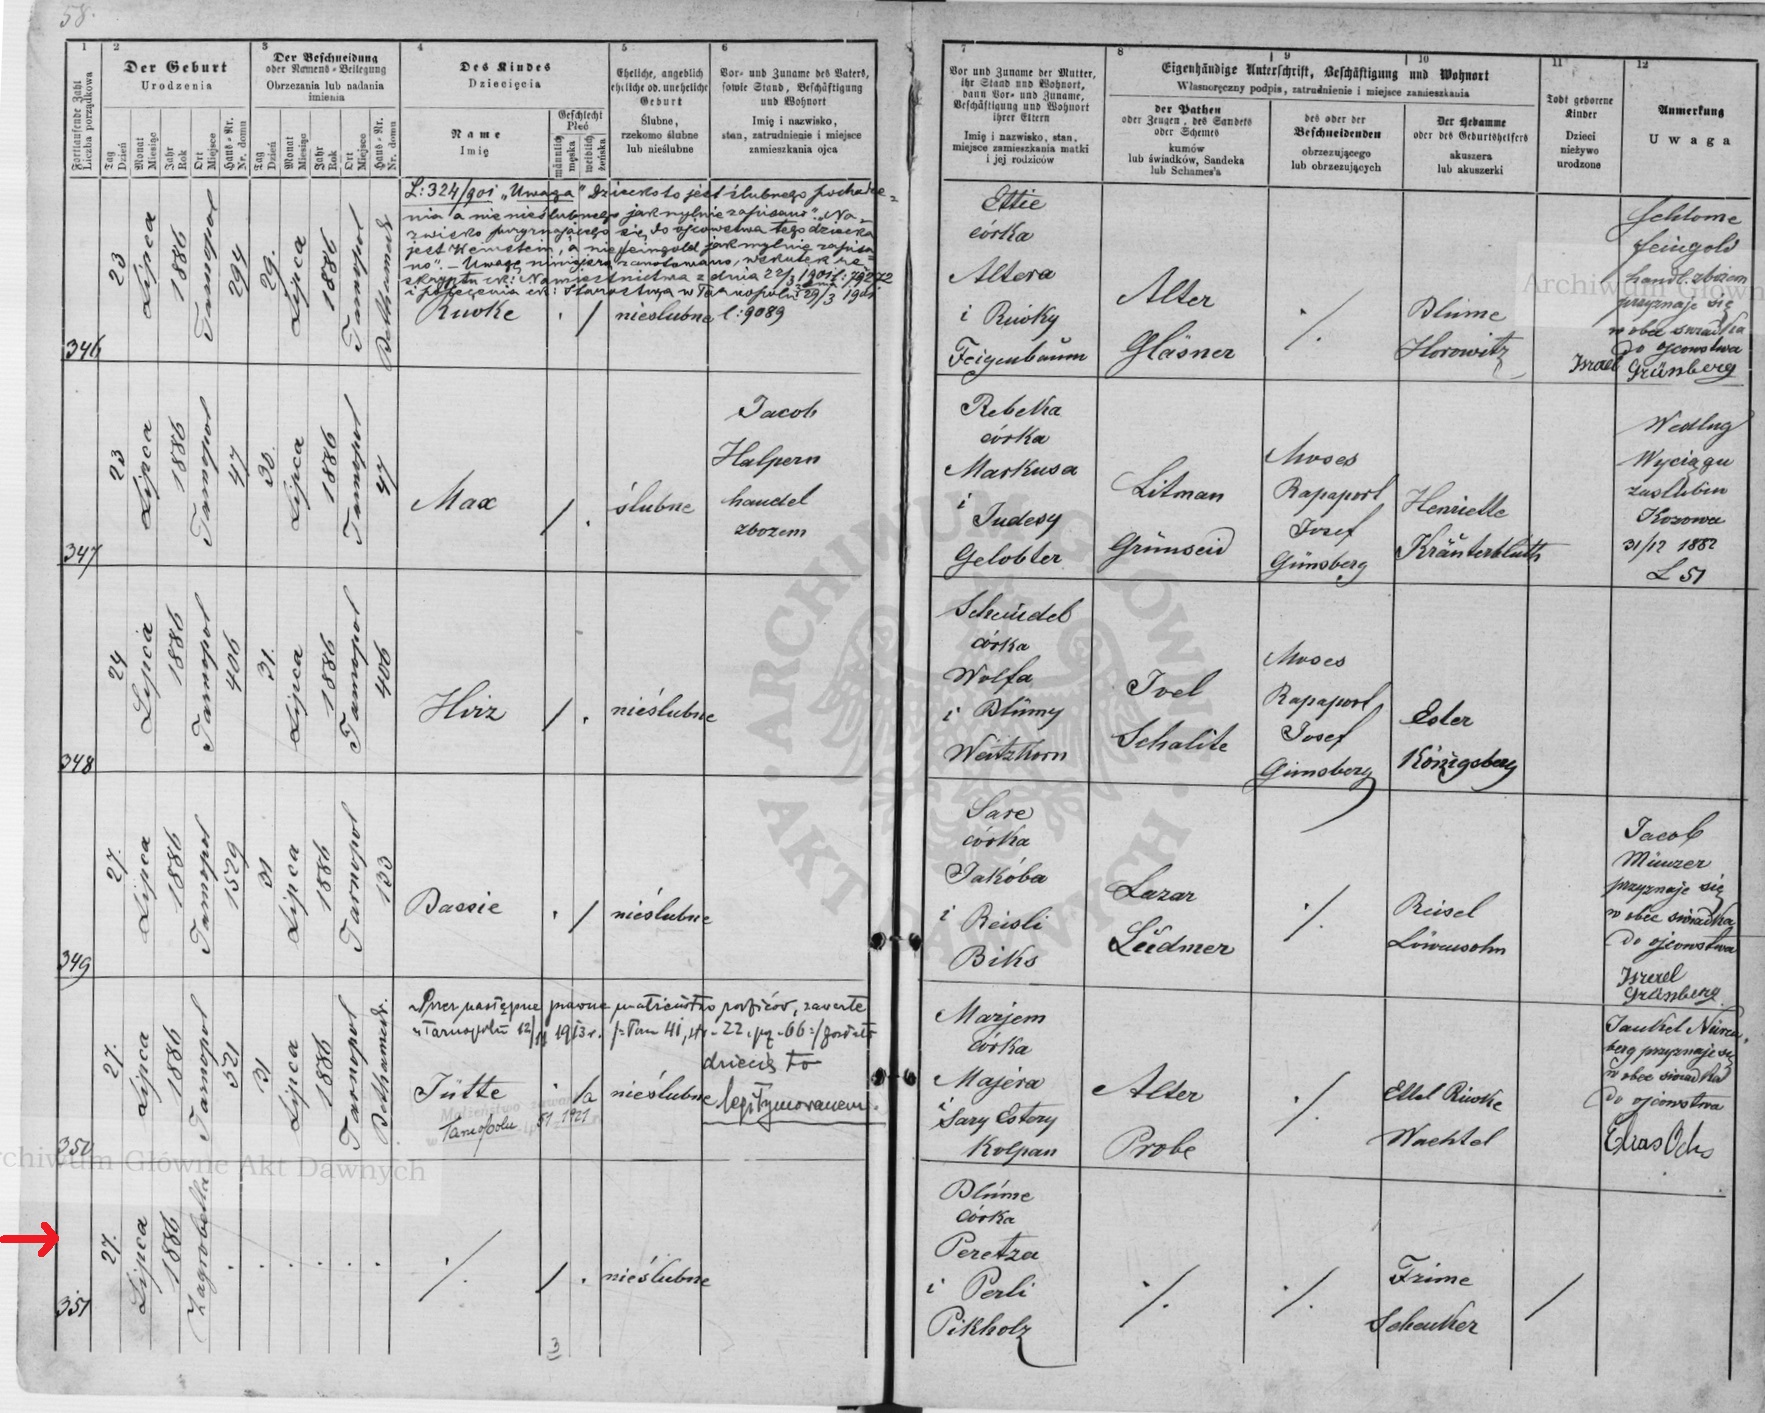 58.
1
Fortlaufende Zahl
Liczba porządkowa
2
Der Geburt
Urodzenia
Tag
Dzień
Monat
Miesiąc
Jahr
Rok
Ort
Miejsce
Haus-Nr.
Nr. domu
3
Der Beschneidung
oder Namens-Beilegung
Obrzezania lub nadania
imienia
Tag
Dzień
Monat
Miesiąc
Jahr
Rok
Ort
Miejsce
Haus-Nr.
Nr. domu
4
Des Kindes
Dziecięcia
Name
Imię
Geschlecht
Płeć
männlich
męska
weiblich
żeńska
5
Eheliche, angeblich
eheliche od. uneheliche
Geburt
Ślubne,
rzekomo ślubne
lub nieślubne
6
Vor- und Zuname des Vaters,
sowie Stand, Beschäftigung
und Wohnort
Imię i nazwisko,
stan, zatrudnienie i miejsce
zamieszkania ojca
7
Vor und Zuname der Mutter,
ihr Stand und Wohnort,
dann Vor- und Zuname,
Beschäftigung und Wohnort
ihrer Eltern
Imię i nazwisko, stan,
miejsce zamieszkania matki
i jej rodziców
8
9
10
Eigenhändige Unterschrift, Beschäftigung und Wohnort
Własnoręczny podpis, zatrudnienie i miejsce zamieszkania
der Pathen
oder Zeugen, des Sandets
oder Schemes
kumów
lub świadków, Sandeka
lub Schames'a
des oder der
Beschneidenden
obrzezującego
lub obrzezujących
Der Hebamme
oder des Geburtshelfers
akuszera
lub akuszerki
11
Todt geborene
Kinder
Dzieci
nieżywo
urodzone
12
Anmerkung
Uwaga
346
23
Lipca
1886
Tarnopol
294
29.
Lipca
1886
Tarnopol
Bethamedr
L: 324/901 „Uwaga" Dziecko to jest ślubnego pochodze-
nia a nie nieślubnego jak mylnie zapisano". „Na-
zwisko przyznającego się do ojcowstwa tego dziecka
jest Weinstein, a nie Feingold jak mylnie zapisa
no". – Uwagę niniejszą zanotowano, wskutek re-
skryptu ck: Namiestnictwa z dnia 22/3 1901 l: 79272
i polecenia ck: Starostwa w Tarnopolu z dnia 29/3 1901
Riwke
. /
nieslubne
l: 9089
Ettie
córka
Altera
i Riwky
Feigenbaum
Alter
Gläsner
./.
Blume
Horowitz
Schlome
Feingold
handl. zbożem
przyznaje się
w obec świadka
do ojcowstwa
Israel Grünberg
347
23
Lipca
1886
Tarnopol
47
30.
Lipca
1886
Tarnopol
47
Max
/ .
ślubne
Jacob
Halpern
handel
zbożem
Rebeka
córka
Markusa
i
Judesy
Gelobter
Litman
Grünseid
Moses
Rapaport
Josef
Günsberg
Henriette
Kräuterblüth
Wedlug
Wyciągu
zaślubin
Kozowa
31/12 1882
L 51
348
24
Lipca
1886
Tarnopol
406
31.
Lipca
1886
Tarnopol
406
Hirz
/ .
nieślubne
Scheindel
córka
Wolfa
i Blümy
Weitzkorn
Joel
Schalite
Moses
Rapaport
Josef
Günsberg
Ester
Königsberg
349
27.
Lipca
1886
Tarnopol
1529
31
Lipca
1886
Tarnopol
133
Bassie
. /
nieślubne
Sare
córka
Jakóba
i Reisli
Biks
Lazar
Leidmer
./.
Reisel
Löwensohn
Jacob
Münzer
przyznaje się
w obec świadka
do ojcowstwa
Israel
Grünberg
350
27.
Lipca
1886
Tarnopol
521
31
Lipca
1886
Tarnopol
Bethamedr.
Przez następne prawne małżeństwo rodziców, zawarte
w Tarnopolu 1913 r. /=Tom 41, str. 22, pg. 66=/ zostało
dziecię to
legitymowanem.
Jütte
nieślubne
Tarnopolu 1921
Marjem
córka
Majera
i Sary Estery
Kolpan
Alter
Probe
./.
Ettel Riwke
Wachtel
Jankel Nüren-
berg przyznaje się
w obec świadka
do ojcowstwa
Elias Ochs
351
27.
Lipca
1886
Zagrobella
. . . . . .
./.
/ .
nieślubne
Blüme
córka
Peretza
i Perli
Pikholz
./.
./.
Frime
Schenker
/
3
Archiwum Główne Akt Dawnych
ARCHIWUM GŁÓWNE AKT DAWNYCH